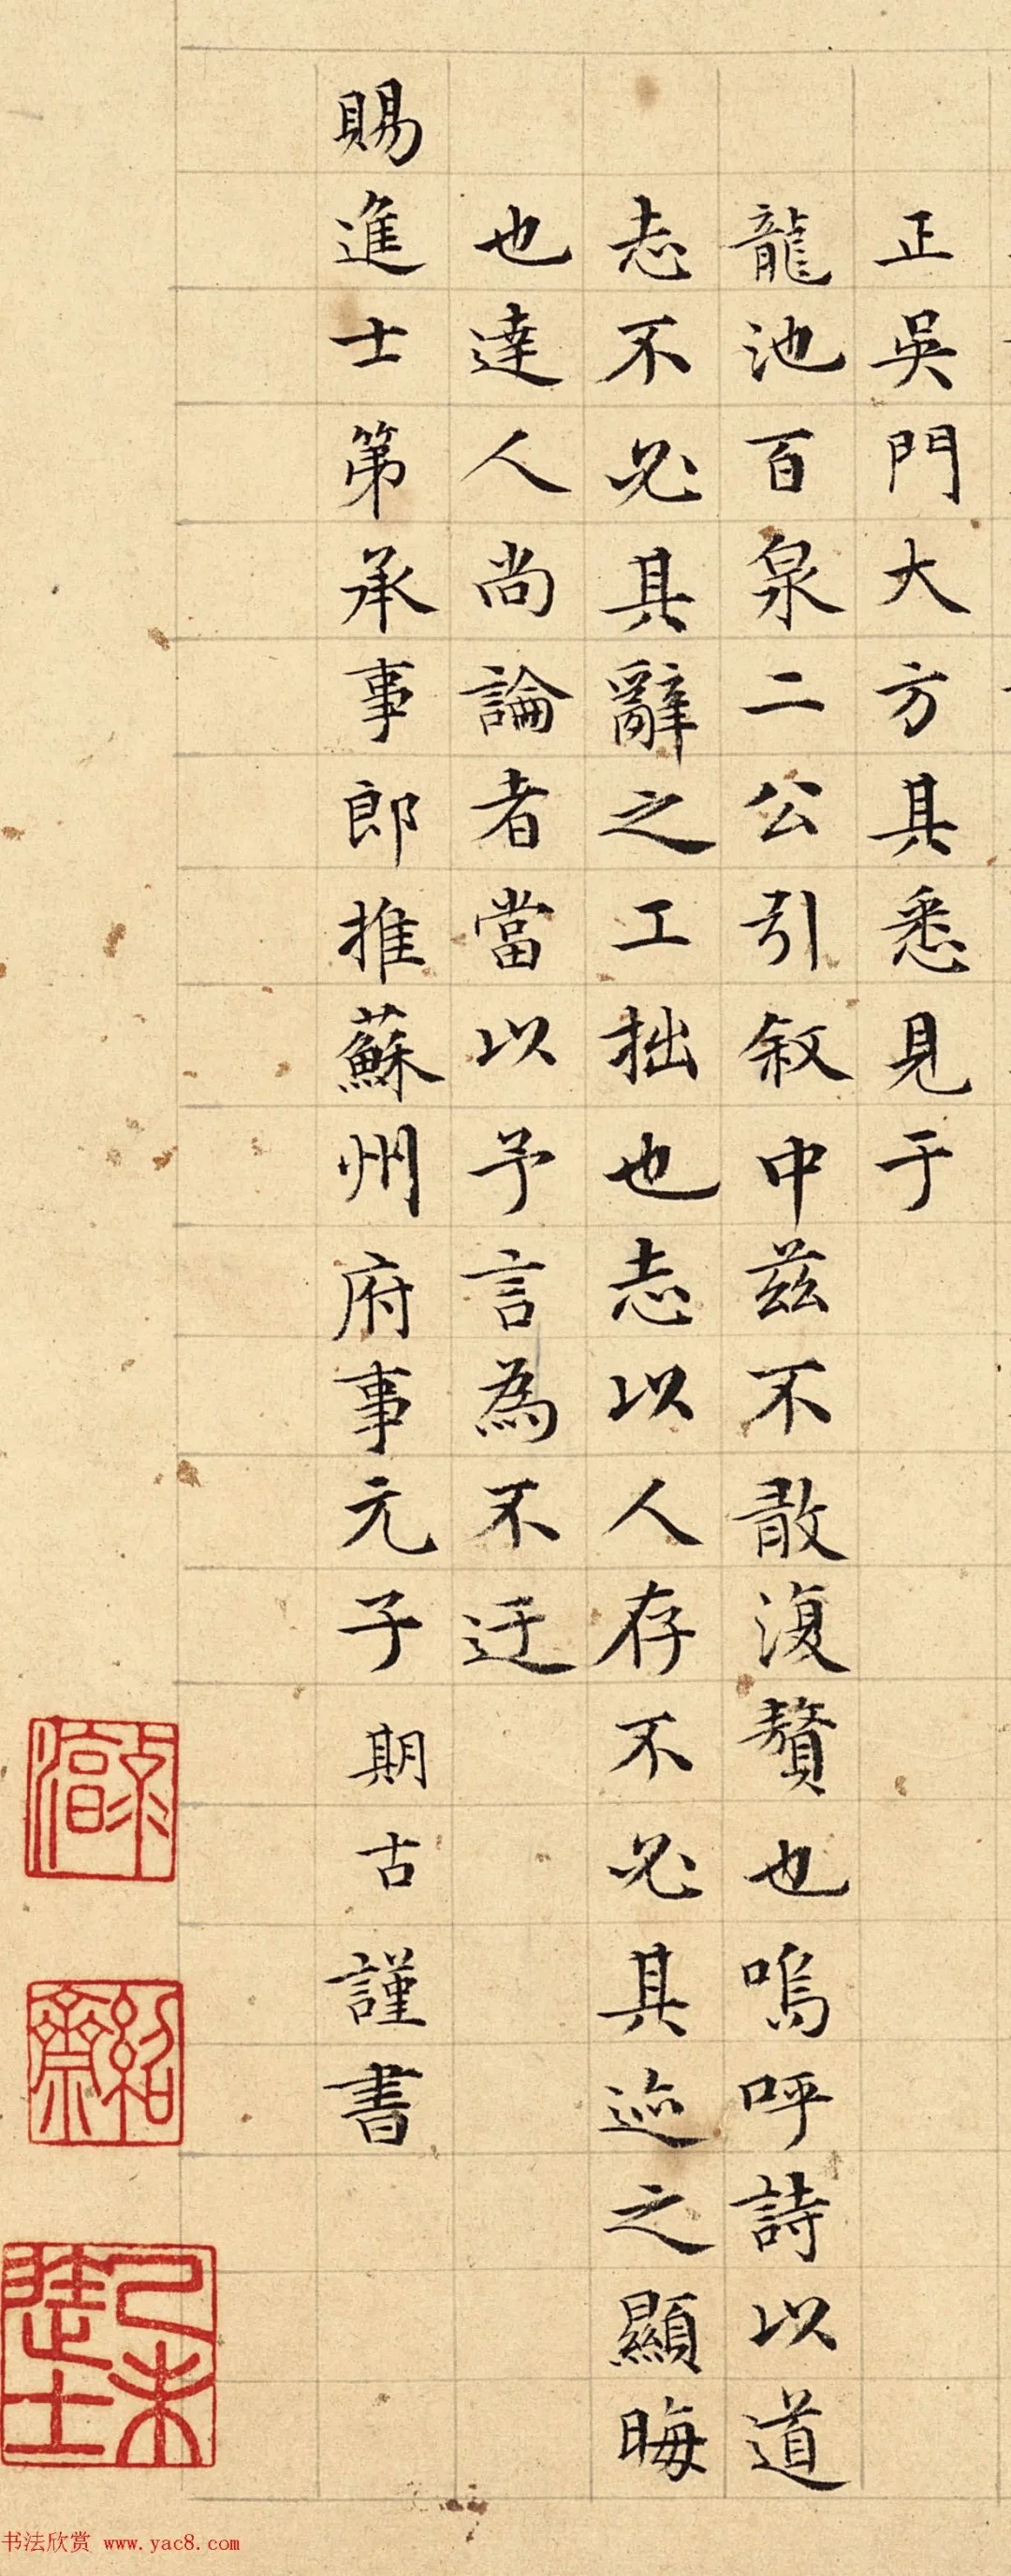 正吳門大方具悉見于
龍池百泉二公引敘中茲不敢復贅也嗚呼詩以道
志不必其辭之工拙也志以人存不必其迹之顯晦
也達人尚論者當以予言為不迂
賜進士第承事郎推蘇州府事元子期古謹書
紹齋
己未進士
书法欣赏 www.yac8.com